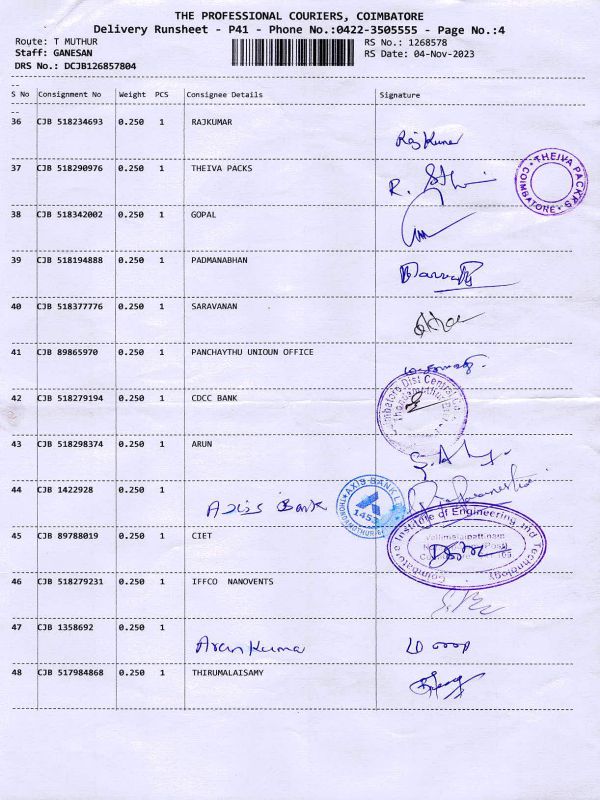 THE PROFESSIONAL COURIERS, COIMBATORE
Delivery Runsheet - P41 - Phone No.:0422-3505555 - Page No.:4
Route: T MUTHUR RS No.: 1268578
Staff: GANESAN RS Date: 04-Nov-2023
DRS No.: DCJB126857804
S No Consignment No Weight PCS Consignee Details Signature
36 CJB 518234693 0.250 1 RAJKUMAR
Rajkumar
37 CJB 518290976 0.250 1 THEIVA PACKS
THEIVA PACKRS
COIMBATORE
38 CJB 518342002 0.250 1 GOPAL
39 CJB 518194888 0.250 1 PADMANABHAN
40 CJB 518377776 0.250 1 SARAVANAN
41 CJB 89865970 0.250 1 PANCHAYTHU UNIOUN OFFICE
42 CJB 518279194 0.250 1 CDCC BANK
Coimbatore Dist Central Co
43 CJB 518298374 0.250 1 ARUN
44 CJB 1422928 0.250 1
Axis Bank
AXIS BANK
1453
45 CJB 89788019 0.250 1 CIET
Coimbatore Institute of Engineering and Technology
46 CJB 518279231 0.250 1 IFFCO NANOVENTS
47 CJB 1358692 0.250 1
Arunkumar
48 CJB 517984868 0.250 1 THIRUMALAISAMY